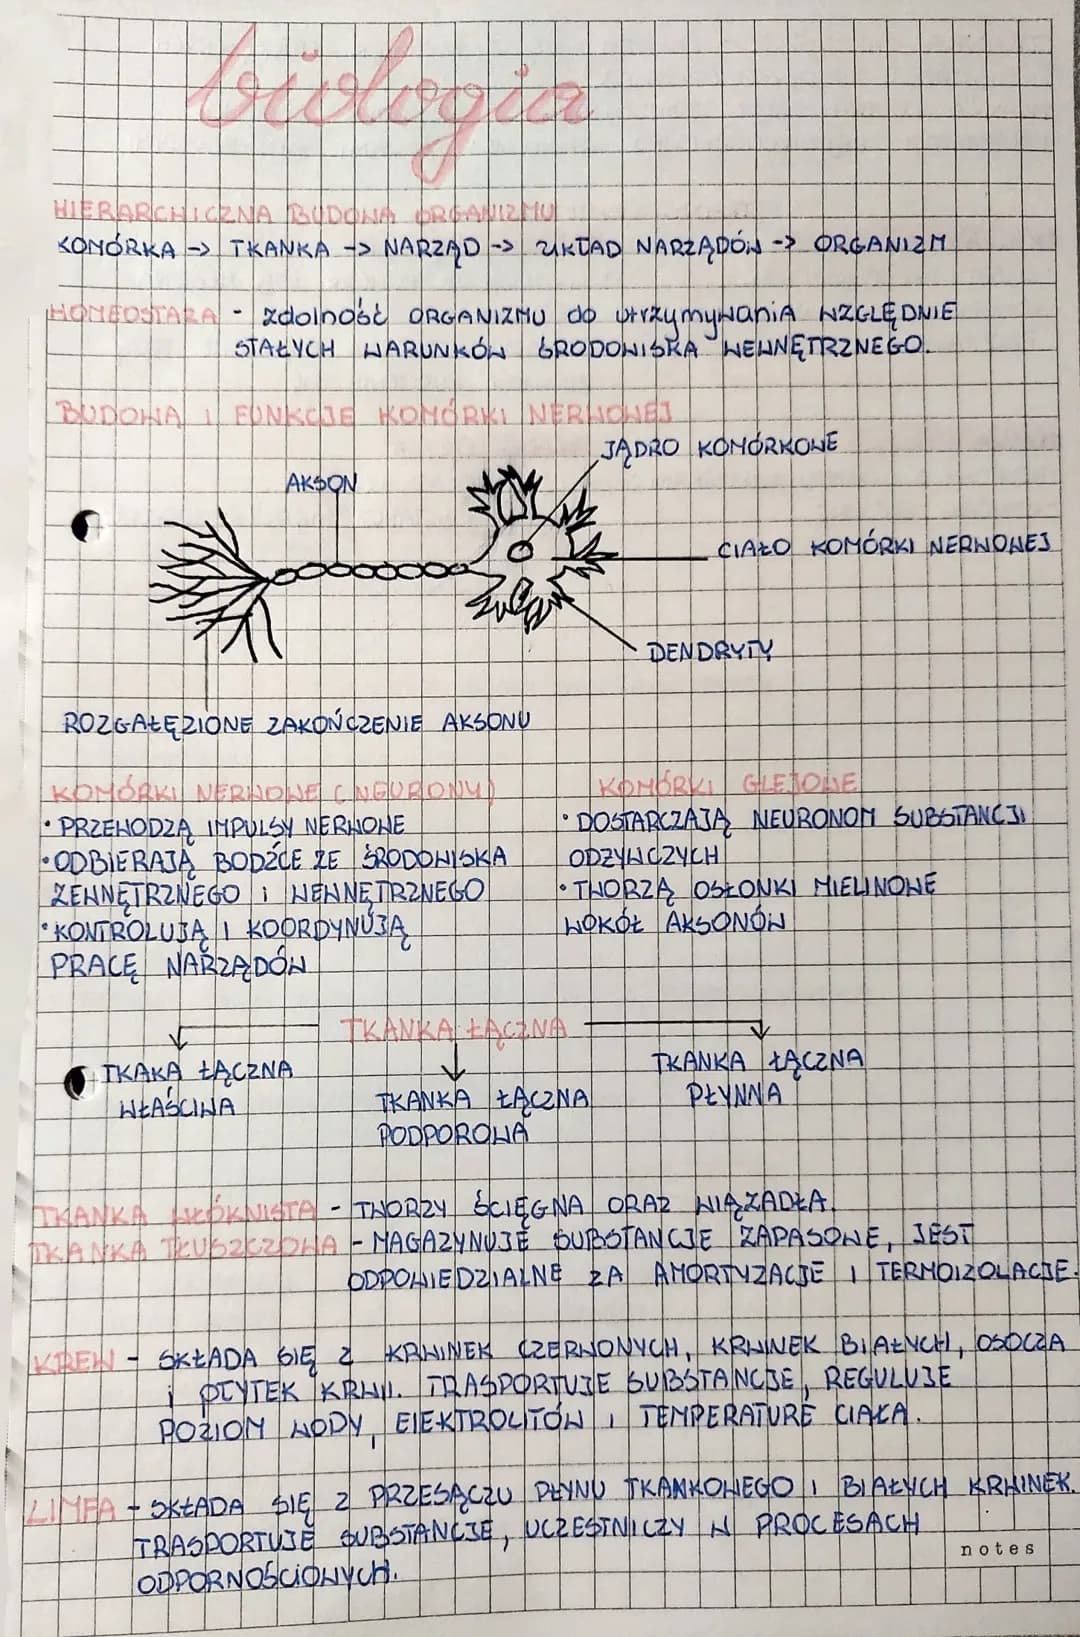 biologia
HIERARCHICZNA BUDOWA ORGANIZMU
KOMÓRKA -> TKANKA -> NARZĄD -> UKŁAD NARZĄDÓW -> ORGANIZM
HOMEOSTAZA - zdolność ORGANIZMU do utrzymywania WZGLĘDNIE
STAŁYCH WARUNKÓW ŚRODOWISKA WEWNĘTRZNEGO.
BUDOWA I FUNKCJE KOMÓRKI NERWOWEJ
JĄDRO KOMÓRKOWE
AKSON
CIAŁO KOMÓRKI NERWOWEJ
DENDRYTY
ROZGAŁĘZIONE ZAKOŃCZENIE AKSONU
KOMÓRKI NERWOWE (NEURONY)
• PRZEWODZĄ IMPULSY NERWOWE
• ODBIERAJĄ BODŹCE ZE ŚRODOWISKA
ZEWNĘTRZNEGO i WEWNĘTRZNEGO
• KONTROLUJĄ I KOORDYNUJĄ
PRACĘ NARZĄDÓW
KOMÓRKI GLEJOWE
• DOSTARCZAJĄ NEURONOM SUBSTANCJI
ODŻYWCZYCH
• TWORZĄ OSŁONKI MIELINOWE
WOKÓŁ AKSONÓW
TKANKA ŁĄCZNA
TKAKA ŁĄCZNA
WŁAŚCIWA
TKANKA ŁĄCZNA
PODPOROWA
TKANKA ŁĄCZNA
PŁYNNA
TKANKA WŁÓKNISTA - TWORZY ŚCIĘGNA ORAZ WIĄZADŁA.
TKANKA TŁUSZCZOWA - MAGAZYNUJE SUBSTANCJE ZAPASOWE, JEST
ODPOWIEDZIALNE ZA AMORTYZACJE I TERMOIZOLACJE.
KREW - SKŁADA SIĘ Z KRWINEK CZERWONYCH, KRWINEK BIAŁYCH, OSOCZA
i PŁYTEK KRWI. TRASPORTUJE SUBSTANCJE, REGULUJE
POZIOM WODY, ElEKTROLITÓW I TEMPERATURĘ CIAŁA.
LIMFA - SKŁADA SIĘ Z PRZESĄCZU PŁYNU TKANKOWEGO I BIAŁYCH KRWINEK.
TRASPORTUJE SUBSTANCJE, UCZESTNICZY W PROCESACH
ODPORNOŚCIOWYCH.
notes